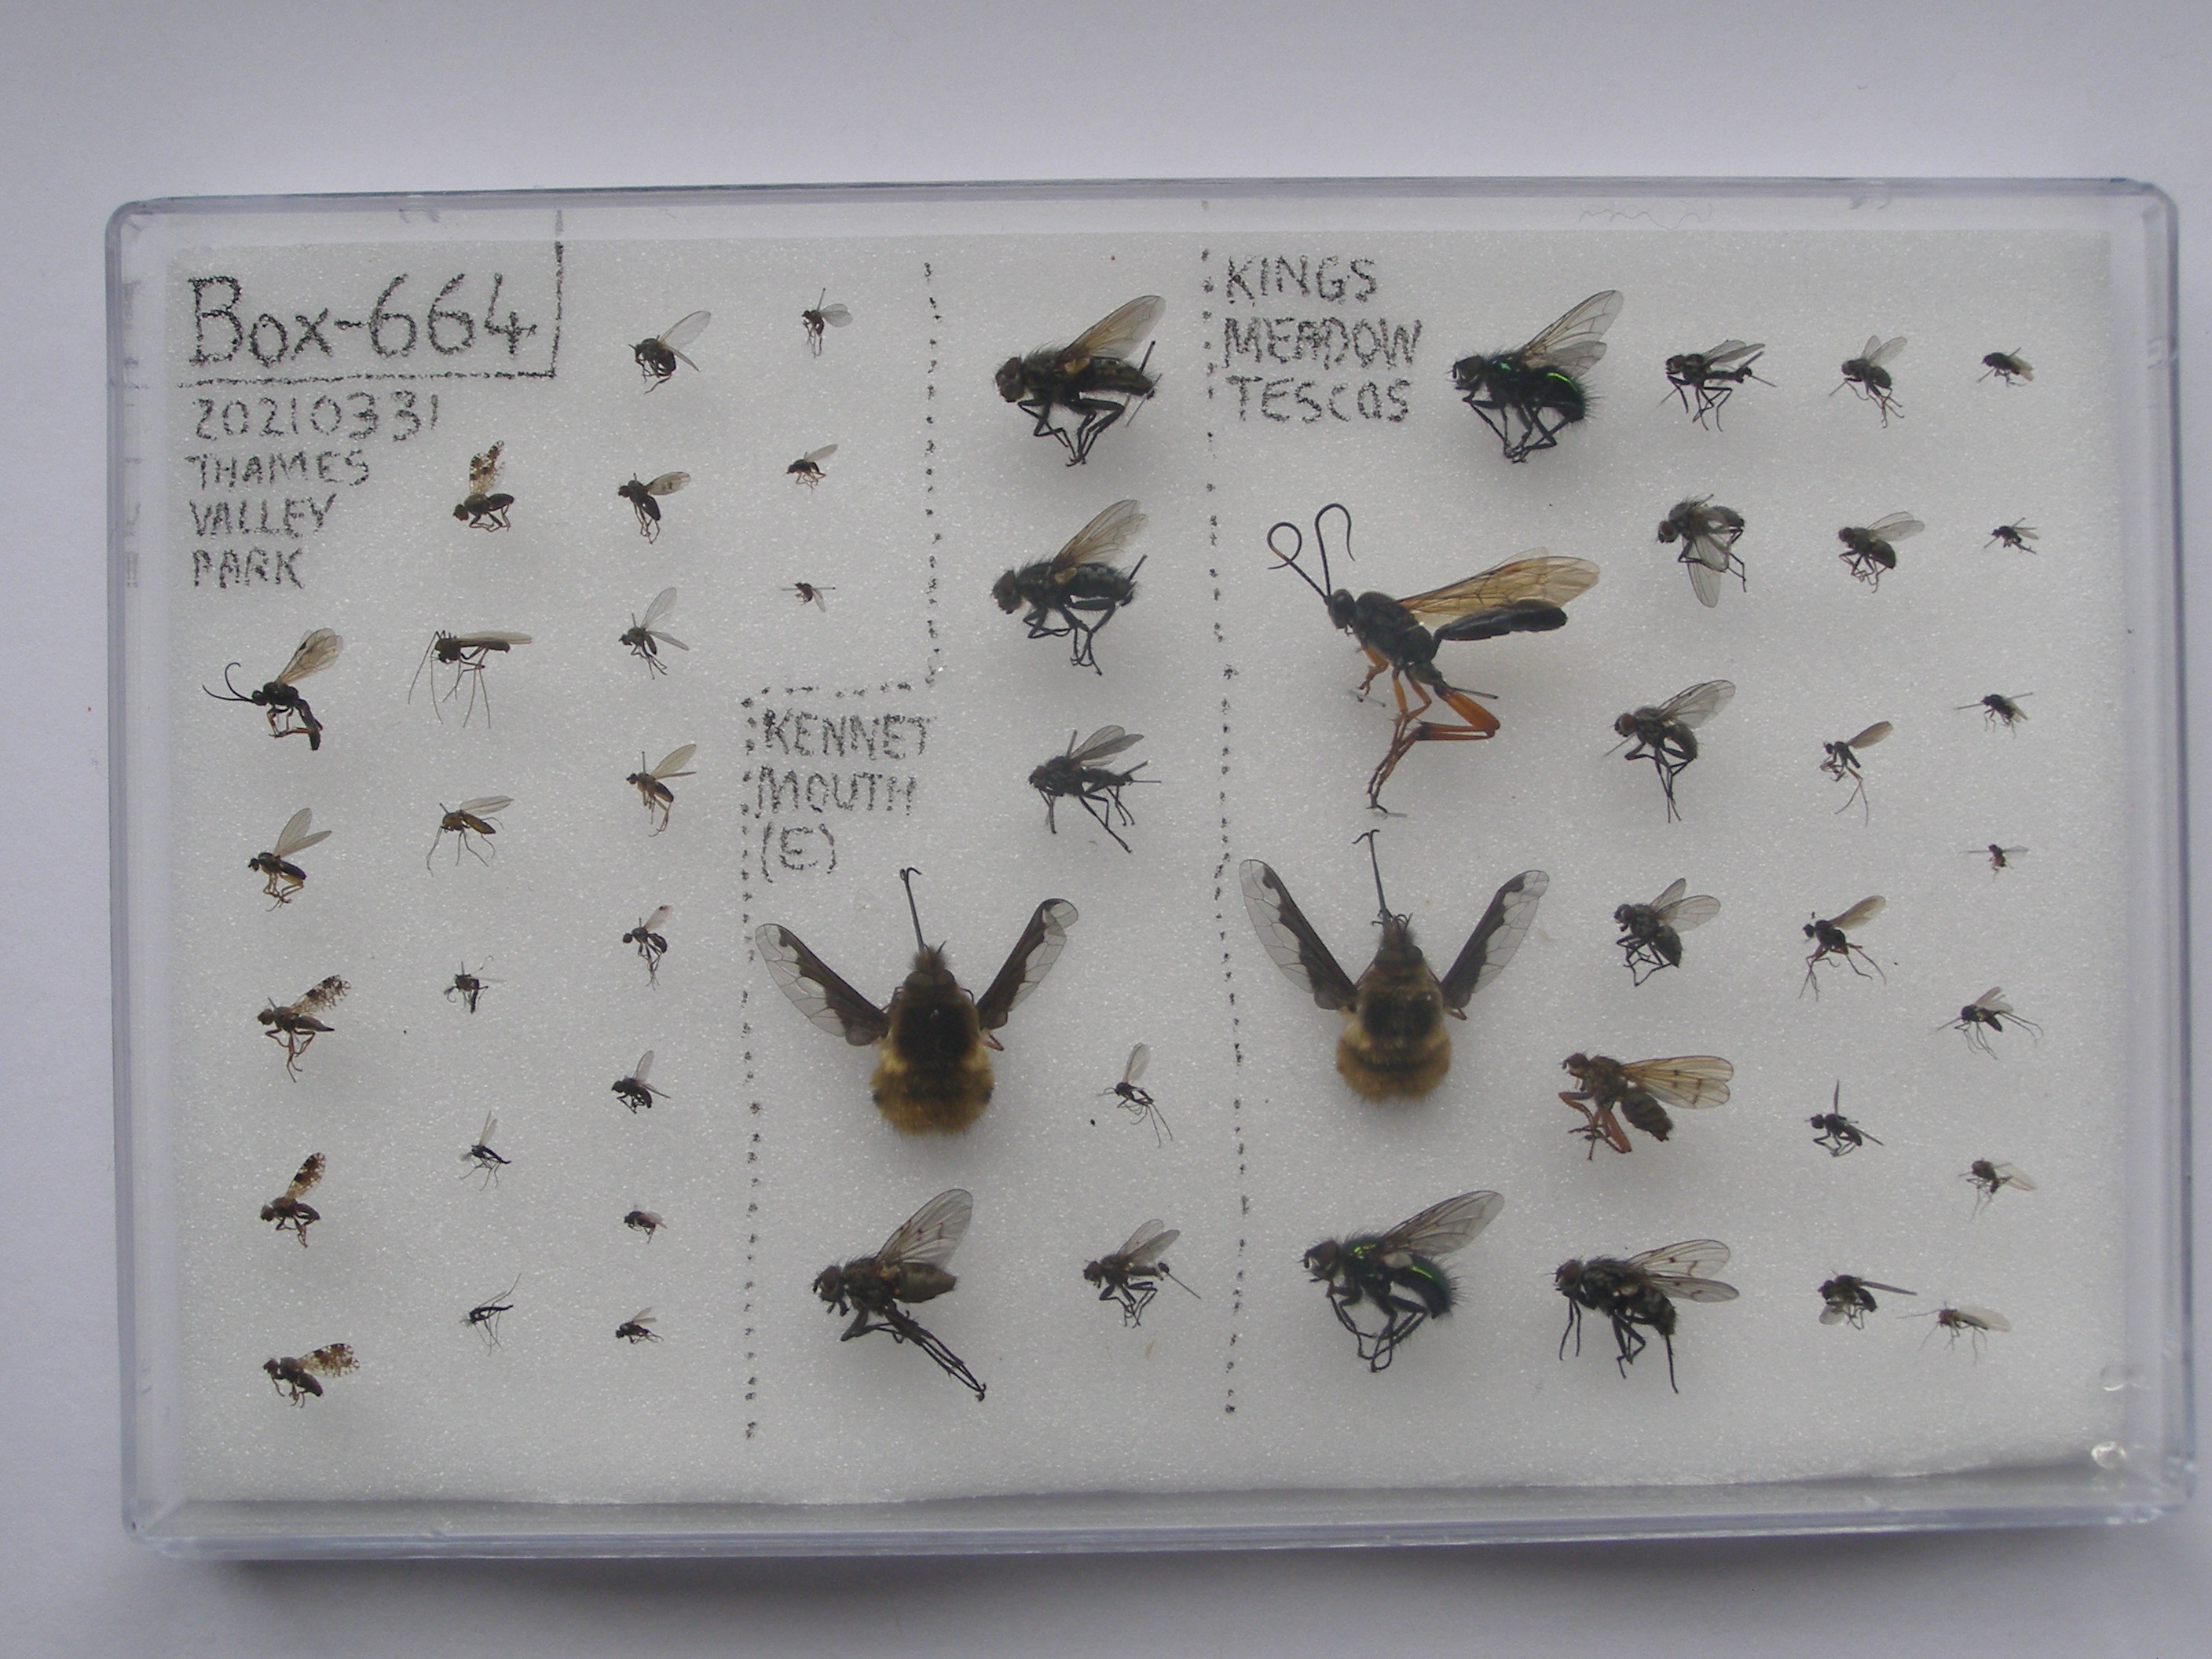 Box-664
20210331
THAMES
VALLEY
PARK
KENNET
MOUTH
(E)
KINGS
MEADOW
TESCOS